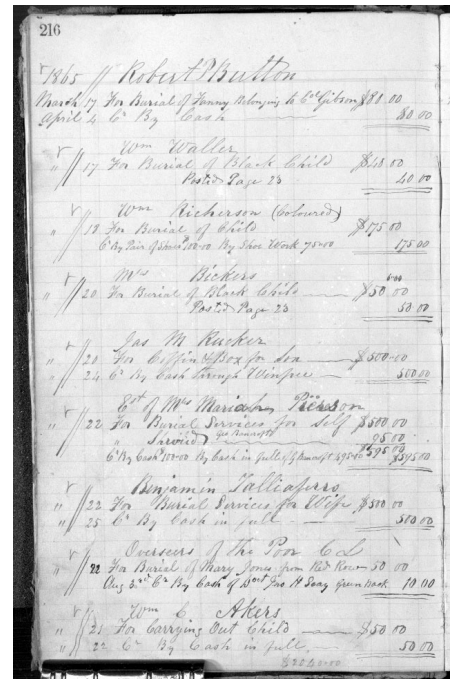 216
1865 // Robert Burton
March 17 For Burial of Fanny Belonging to Est Gibson $80.00
April 4 Cr By Cash 80.00
Wm Waller
" // 17 For Burial of Black Child $40.00
Posted Page 23 40 00
Wm Richerson (Coloured)
" // 18 For Burial of Child $175 00
Cr By Pair of Shoes 100.00 By Shoe Work 75.00 175.00
Mrs Bickers
" // 20 For Burial of Black Child $50 00
Posted Page 23 50 00
Jas M Rucker
" // 20 For Coffin & Box for Son $500.00
" // 24 Cr By Cash through Winfree 500.00
Est of Mrs Pierson
" // 22 For Burial Services for Self $500.00
" 95 00
$595 00
Cr By Cash 100.00 By Cash in full of 495.00 $595.00
Benjamin Talliaferro
" // 22 For Burial Services for Wife $500 00
" // 25 Cr By Cash in full 500.00
Overseers of The Poor C L
" // 22 For Burial of Mary Jones from Red Row 50 00
Aug 3rd Cr By Cash of Jno H Seay Green back 10 00
Wm C Akers
" // 21 For Carrying Out Child $50 00
" // 22 Cr By Cash in full 50 00